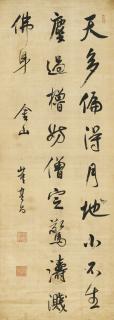 天多偏得月地小不生
塵過櫓妨僧定驚濤濺
佛身
金山
董其昌